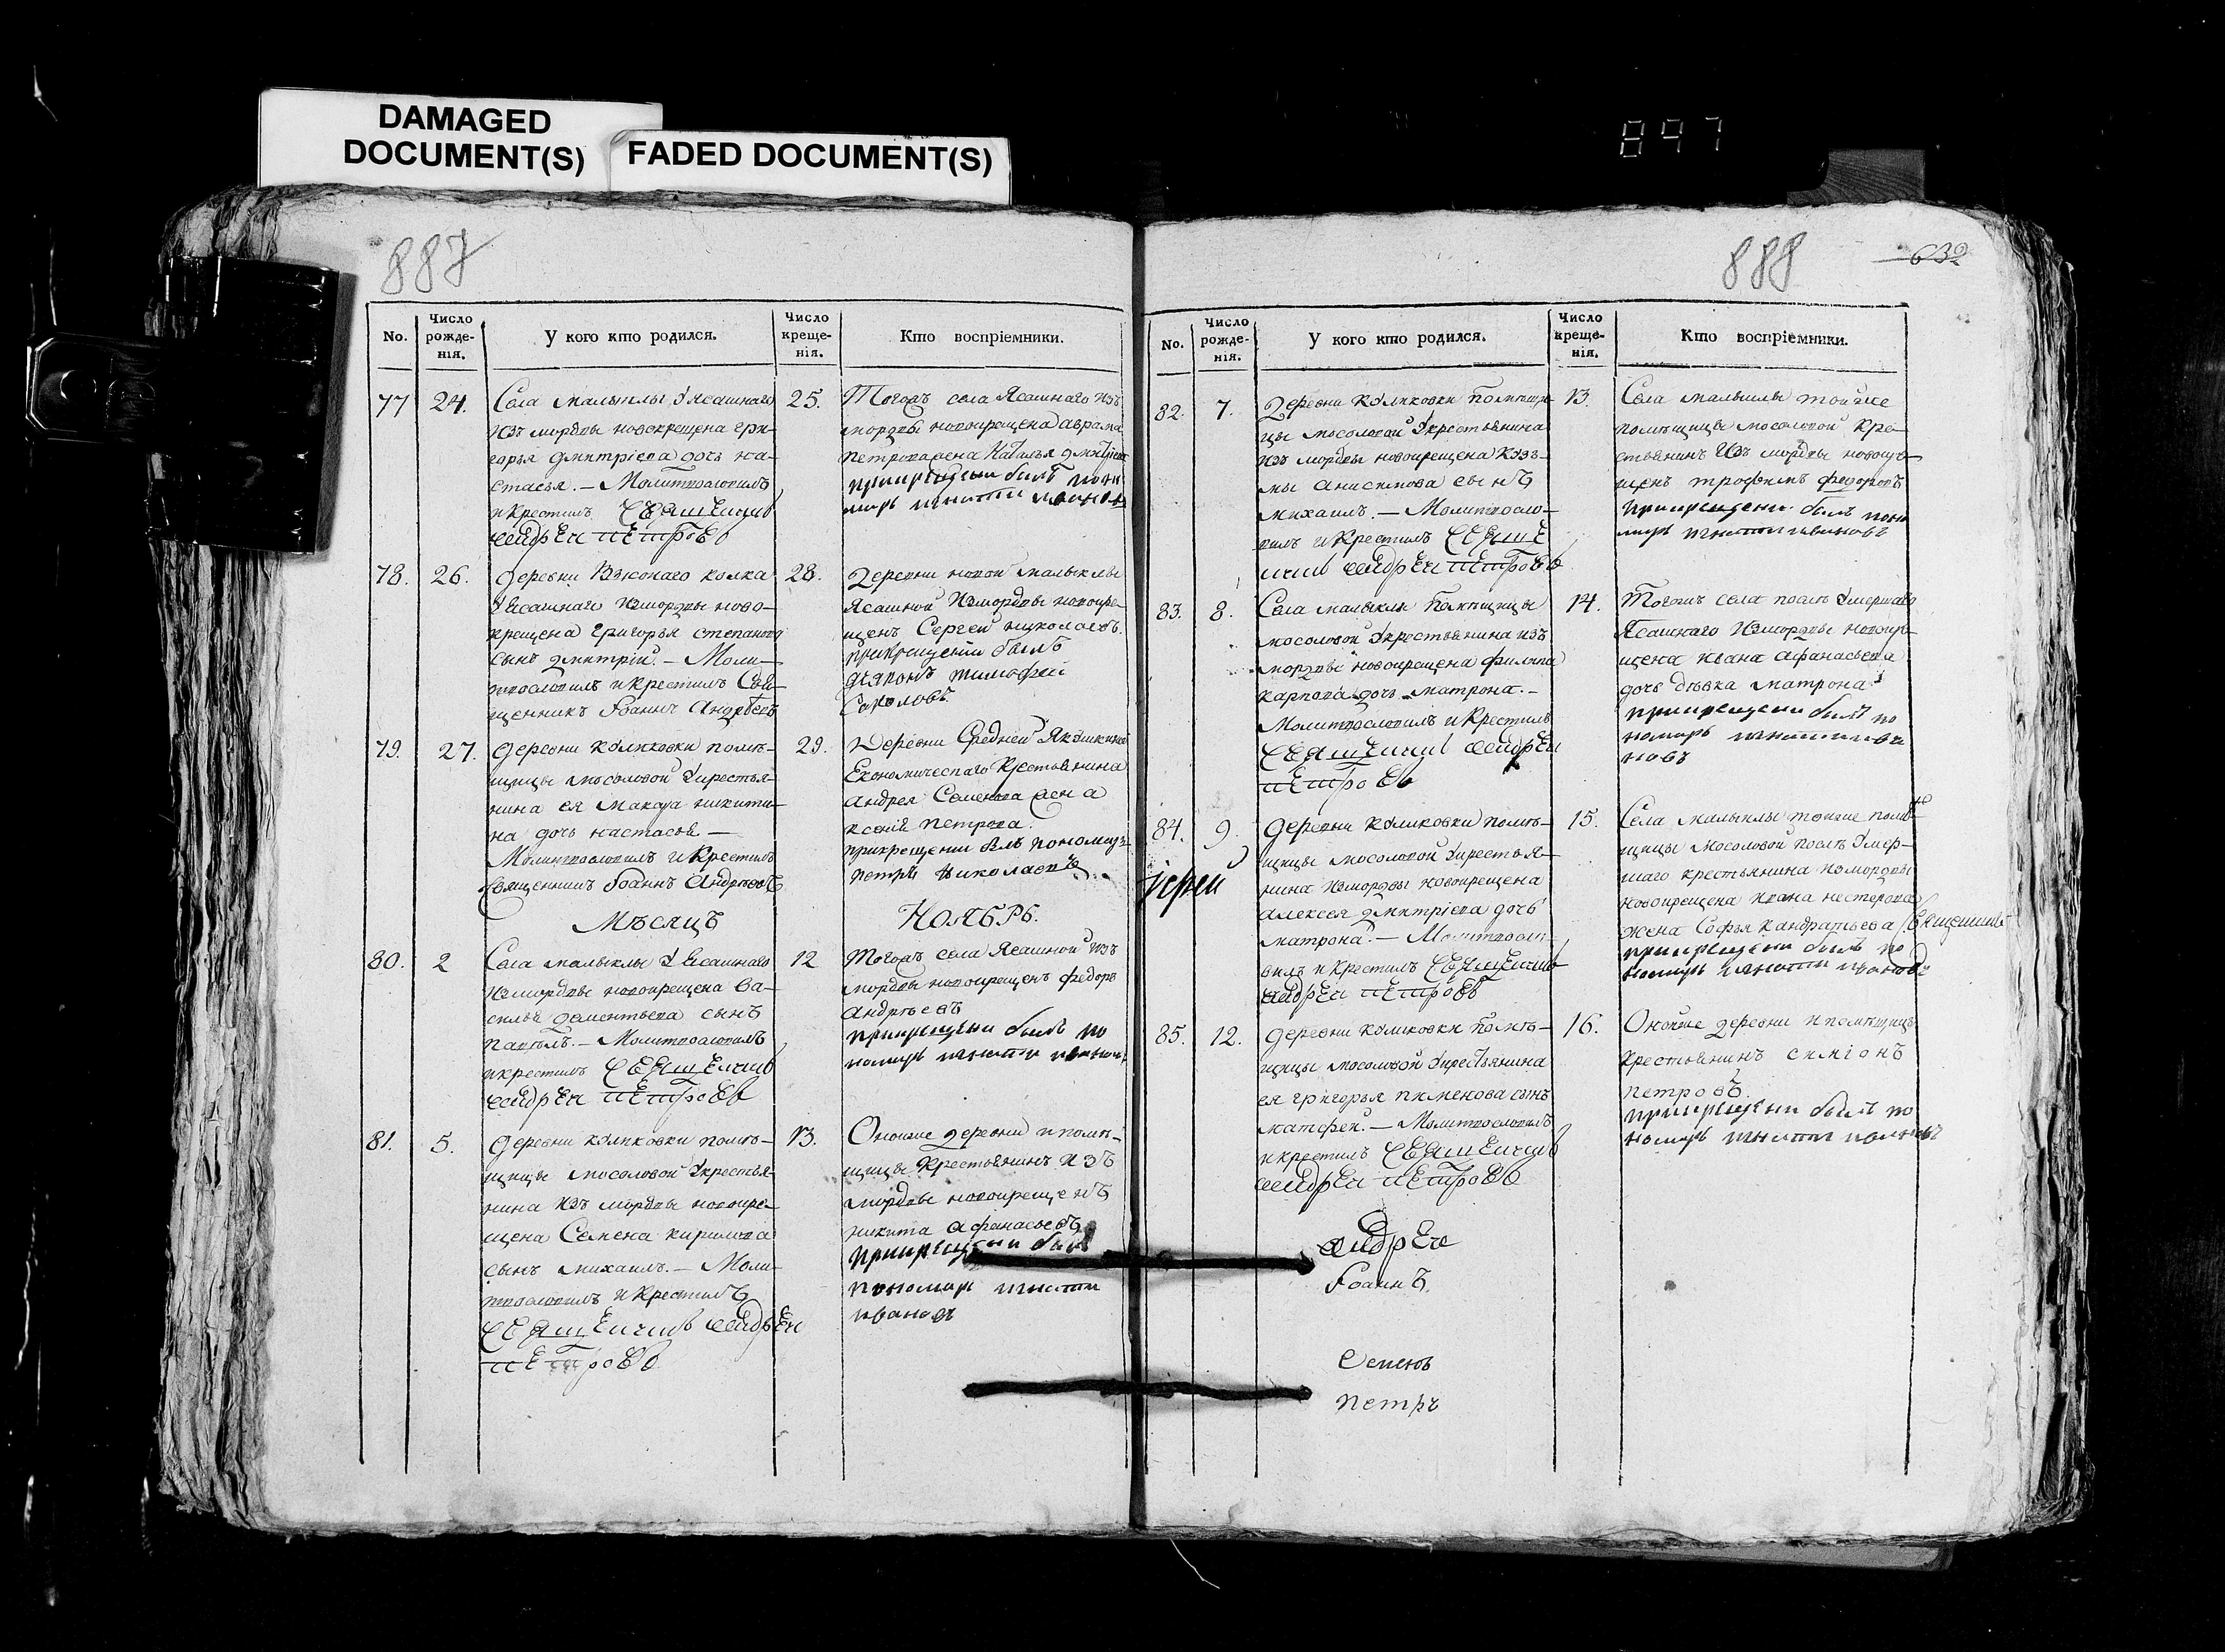 DAMAGED
DOCUMENT(S)
FADED DOCUMENT(S)
897
887
No.
Число рожденія.
У кого кто родился.
Число крещенія.
Кто воспріемники.
77
24.
Села малыклы У Ясашнаго
изъ мордвы новокрещена гри-
горья дмитріева дочь на-
стасья. — Молитвословилъ
и крестилъ священникъ
андрей петровъ
25.
Тогожъ села Ясашнаго изъ
мордвы новокрещена аврама
петрова жена наталья дмитріева
прикрещении былъ поно
марь игнатий ивановъ
78.
26.
деревни Вяжонаго колка
У Ясашнаго измордвы ново-
крещена григорья степанова
сынъ дмитрій. — Моли-
твословилъ и крестилъ Свя-
щенникъ Іоаннъ Андрѣевъ
28.
деревни новой малыклы
Ясашной измордвы новокре-
щенъ Сергей николаевъ.
прикрещении былъ
дьяконъ тимофей
Соколовъ
79.
27.
деревни куликовки помѣ-
щицы мосоловой Укрестья-
нина ея макара никити-
на дочь настасья —
Молитвословилъ и крестилъ
священникъ Іоаннъ Андрѣевъ
29.
Деревни Средней Якушкиной
Економическаго Крестьянина
андрея Семенова жена
ксения петрова.
прикрещении былъ пономарь
петръ николаевъ
Мѣсяцъ
НОЯБРЬ.
80.
2
Села малыклы У Ясашнаго
измордвы новокрещена ва-
силья дементьева сынъ
павелъ. — Молитвословилъ
и крестилъ священникъ
андрей петровъ
12
Тогожъ села Ясашной изъ
мордвы новокрещенъ федоръ
андрѣевъ
прикрещении былъ по
номарь игнатий ивановъ
81.
5.
деревни куликовки помѣ-
щицы мосоловой Укрестья-
нина изъ мордвы новокре-
щена Семена кирилова
сынъ михаилъ. — Моли-
твословилъ и крестилъ
священникъ андрей
петровъ
13.
Оноиже деревни и помѣ-
щицы крестьянинъ изъ
мордвы новокрещенъ
никита афанасьевъ
прикрещении былъ
пономарь игнатий
ивановъ
888
632
No.
Число рожденія.
У кого кто родился.
Число крещенія.
Кто воспріемники.
82.
7.
деревни куликовки помѣщи-
цы мосоловой Укрестьянина
изъ мордвы новокрещена кузь-
мы анисимова сынъ
михаилъ. — Молитвосло-
вилъ и крестилъ священ
никъ андрей петровъ
13.
Села малыклы тойже
помѣщицы мосоловой кре-
стьянинъ изъ мордвы новокре-
щенъ трофимъ федоровъ
прикрещении былъ поно
марь игнатий ивановъ
83.
8.
Села малыклы помѣщицы
мосоловой Укрестьянина изъ
мордвы новокрещена филипа
карпова дочь матрона. —
Молитвословилъ и крестилъ
священникъ андрей
петровъ
14.
Тогожъ села послѣ Умершаго
Ясашнаго измордвы новокре-
щена ивана афанасьева
дочь дѣвка матрона
прикрещении былъ по
номарь игнатий ива
новъ
84.
9.
деревни куликовки помѣ-
щицы мосоловой Укрестья-
нина измордвы новокрещена
алексея дмитріева дочь
матрона. — Молитвосло-
вилъ и крестилъ священникъ
андрей петровъ
15.
Села малыклы тоиже помѣ-
щицы мосоловой послѣ Умер-
шаго крестьянина измордвы
новокрещена ивана нестерова
жена Софья кандратьева
прикрещении былъ по
номарь игнатий ивановъ
іерей
священникъ
85.
12.
деревни куликовки помѣ-
щицы мосоловой Укрестьянина
ея григорья пименова сынъ
матфей. — Молитвословилъ
и крестилъ священникъ
андрей петровъ
16.
Оноиже деревни и помѣщицы
крестьянинъ симіонъ
петровъ.
прикрещении былъ по
номарь игнатий ивановъ
андрей
Іоаннъ
Семенъ
петръ